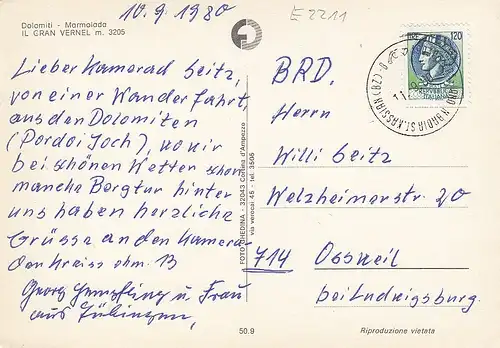 10.9.1980
E2211
Dolomiti - Marmolada
IL GRAN VERNEL m. 3205
120
Lieber Kamerad Seitz,
von einer Wanderfahrt,
aus den Dolomiten
(Pordoi Joch), wo wir
bei schönen Wetter schon
manche Bergtur hinter
uns haben herzliche
Grüsse an den Kamera-
den Kreiss ehm. 13
Georg u. Frau
aus Tübingen,
FOTO GHEDINA - 32043 Cortina d'Ampezzo
via verocai 45 - tel. 3565
BRD.
Herrn
Willi Seitz
Welzheimerstr. 20
714 Ossweil
bei Ludwigsburg.
50.9
Riproduzione vietata